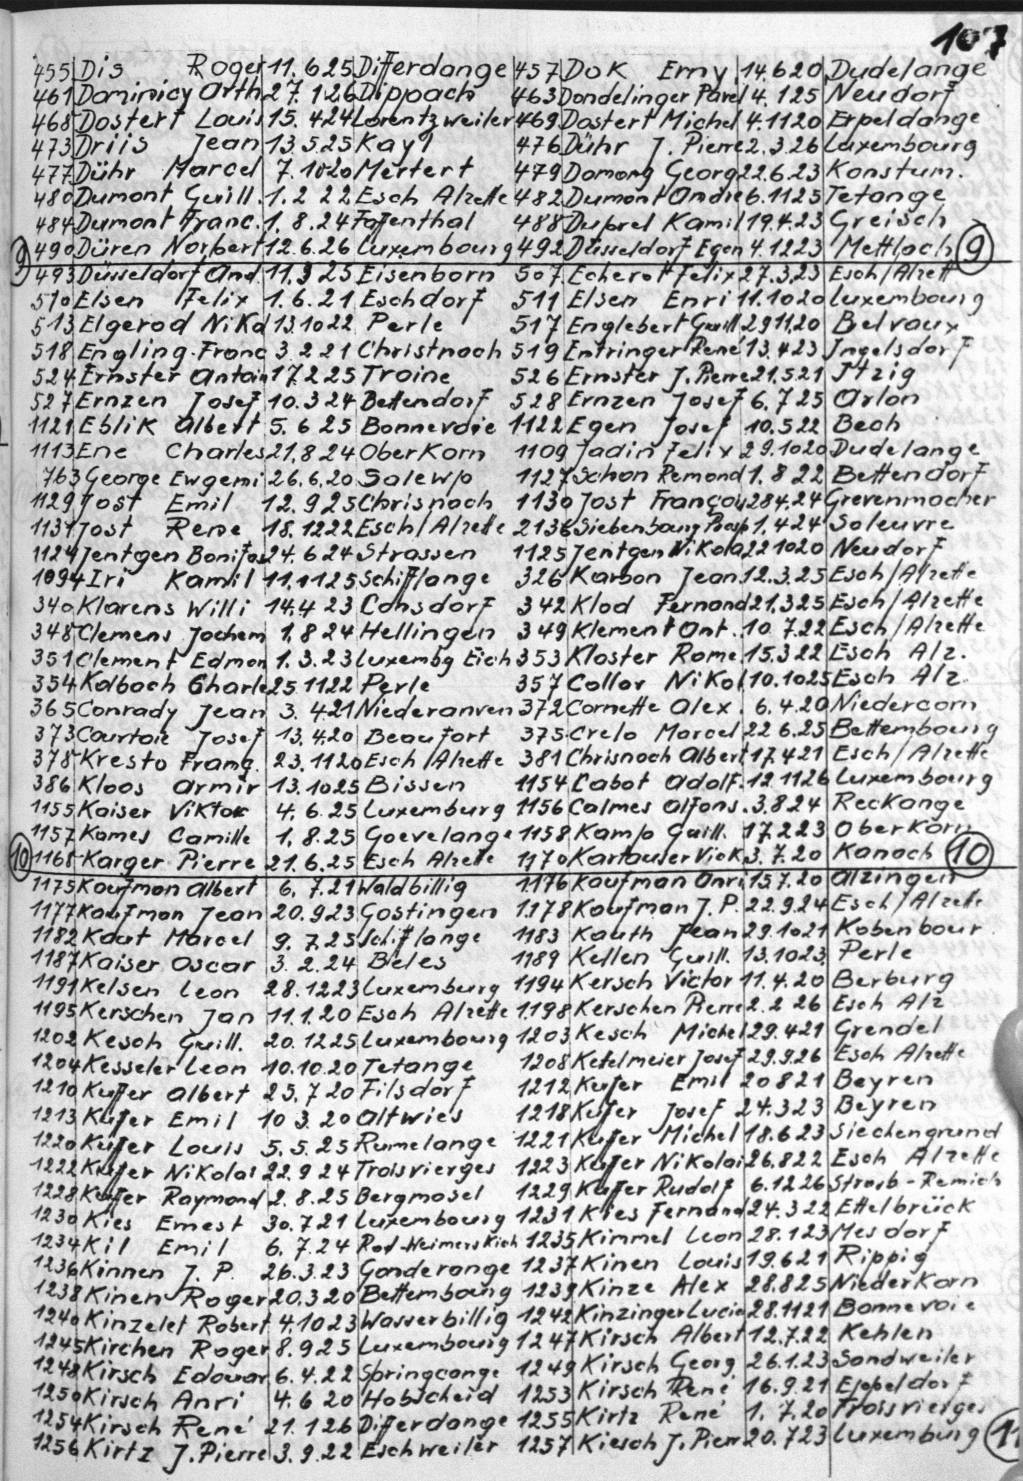 107
455 Dis Roger 11.6.25 Differdange 457 Dok Erny 14.6.20 Dudelange
461 Dominicy Arth 27.1.26 Dippach 463 Dondelinger Pavel 4.1.25 Neudorf
468 Dostert Louis 15.4.24 Lorentzweiler 469 Dostert Michel 4.11.20 Erpeldange
473 Driis Jean 13.5.25 Kayl 476 Dühr J. Pierre 2.3.26 Luxembourg
477 Dühr Marcel 7.10.20 Mertert 479 Domang Georg 22.6.23 Konstum.
480 Dumont Guill. 1.2 22 Esch Alzette 482 Dumont Andre 6.11.25 Tetange
484 Dumont Franc. 1.8.24 Faffenthal 488 Duprel Kamil 19.4.23 Greisch
9 490 Düren Norbert 12.6.26 Luxembourg 492 Düsseldorf Egon 4.12.23 Mettlach 9
493 Düsseldorf And. 11.3.25 Eisenborn 507 Echerot Felix 27.3.23 Esch/Alzett
510 Elsen Felix 1.6.21 Eschdorf 511 Elsen Enri 11.10.20 Luxembourg
513 Elgerod Nikd 13.10 22 Perle 517 Englebert Guill 29.11.20 Belvaux
518 Engling Franc 3.2 21 Christnach 519 Entringer René 13.4.23 Jngelsdorf
524 Ernster Antoin 17.2.25 Troine 526 Ernster J. Pierre 21.5.21 Jtzig
527 Ernzen Josef 10.3 24 Bettendorf 528 Ernzen Josef 6.7.25 Arlon
1121 Eblik Albert 5.6 25 Bonnevoie 1122 Egen Josef 10.5.22 Bech
1113 Ene Charles 21.8 24 Oberkorn 1109 Jadin Felix 29.10.20 Dudelange
763 George Ewgeni 26.6.20 Salewp 1127 Schon Remond 1.8 22 Bettendorf
1129 Jost Emil 12.9.25 Chrisnach 1130 Jost Françou 28.4.24 Grevenmacher
1131 Jost Rene 18.12.22 Esch/Alzette 2136 Siebenbaurg Prosp 1.4.24 Soleuvre
1124 Jentgen Bonifas 24.6.24 Strassen 1125 Jentgen Nikola 22.10.20 Neudorf
1094 Iri Kamil 11.11.25 Schifflange 326 Karbon Jean 12.3.25 Esch/Alzette
340 Klarens Willi 14.4 23 Consdorf 342 Klod Fernand 21.3.25 Esch/Alzette
348 Clemens Jochem 1.8 24 Hellingen 349 Klement Ant. 10.7.22 Esch/Alzette
351 Clement Edmon 1.3.23 Luxembg Eich 353 Kloster Rome 15.3 22 Esch Alz.
354 Kolbach Charle 25.11.22 Perle 357 Collar Nikol 10.10.25 Esch Alz.
365 Conrady Jean 3.4.21 Niederanven 372 Cornette Alex. 6.4.20 Niedercorn
373 Courtoie Josef 13.4.20 Beaufort 375 Crelo Marcel 22.6.25 Bettembourg
378 Kresto Franq. 23.11.20 Esch/Alzette 381 Chrisnach Albert 17.4.21 Esch/Alzette
386 Kloos Armir 13.10.25 Bissen 1154 Cabot Adolf. 12.11.26 Luxembourg
1155 Kaiser Viktor 4.6.25 Luxemburg 1156 Calmes Alfons. 3.8.24 Reckange
1157 Kames Camille 1.8.25 Goevelange 1158 Kamp Guill. 17.2.23 Oberkorn
10 1168 Karger Pierre 21.6.25 Esch Alzette 1170 Kartauser Vick. 3.7.20 Kanach 10
1175 Kaufman Albert 6.7.21 Waldbillig 1176 Kaufman Anri 15.7.20 Alzingen
1177 Kaufman Jean 20.9.23 Gostingen 1178 Kaufman J. P. 22.9.24 Esch/Alzette
1182 Kaut Marcel 9.7.25 Schiflange 1183 Kauth Jean 29.10.21 Kobenbour.
1187 Kaiser Oscar 3.2.24 Beles 1189 Kellen Guill. 13.10.23. Perle
1191 Kelsen Leon 28.12.23 Luxemburg 1194 Kersch Victor 11.4.20 Berburg
1195 Kerschen Jan 11.1.20 Esch Alzette 1198 Kerschen Pierre 2.2 26 Esch Alz
1202 Kesch Guill. 20.12.25 Luxembourg 1203 Kesch Michel 29.4.21 Grendel
1204 Kesseler Leon 10.10.20 Tetange 1208 Ketelmeier Josef 29.9.26 Esch Alzette
1210 Kuffer Albert 25.7.20 Filsdorf 1212 Kufer Emil 20 8 21 Beyren
1213 Kuffer Emil 10 3.20 Altwies 1218 Kufer Josef 24.3.23 Beyren
1220 Kuffer Louis 5.5.25 Rumelange 1221 Kuffer Michel 18.6.23 Siechengrund
1222 Kuffer Nikolai 22.9 24 Troisvierges 1223 Kuffer Nikolai 26.8.22 Esch Alzette
1228 Kuffer Raymond 2.8.25 Bergmosel 1229 Kuffer Rudolf 6.12.26 Strasb-Remich
1230 Kies Ernest 30.7.21 Luxembourg 1231 Kies Fernand 24.3.22 Ettelbrück
1234 Kil Emil 6.7.24 Rod-Weimerskich 1235 Kimmel Leon 28.1.23 Mesdorf
1236 Kinnen J. P. 26.3.23 Gonderange 1237 Kinen Louis 19.6.21 Rippig
1238 Kinen Roger 20.3 20 Bettembourg 1239 Kinze Alex 28.8.25 Niederkorn
1240 Kinzelet Robert 4.10.23 Wasserbillig 1242 Kinzinger Lucie 28.11.21 Bonnevoie
1245 Kirchen Roger 8.9.25 Luxembourg 1247 Kirsch Albert 12.7.22 Kehlen
1248 Kirsch Edouar 6.4.22 Springcange 1249 Kirsch Georg 26.1.23 Sandweiler
1250 Kirsch Anri 4.6 20 Hobscheid 1253 Kirsch René 16.9.21 Eppeldorf
1254 Kirsch René 21.1.26 Differdange 1255 Kirtz René 1.7.20 Troisvierges
1256 Kirtz J. Pierre 3.9.22 Eschweiler 1257 Kiesch J. Pierr 20.7.23 Luxemburg 11